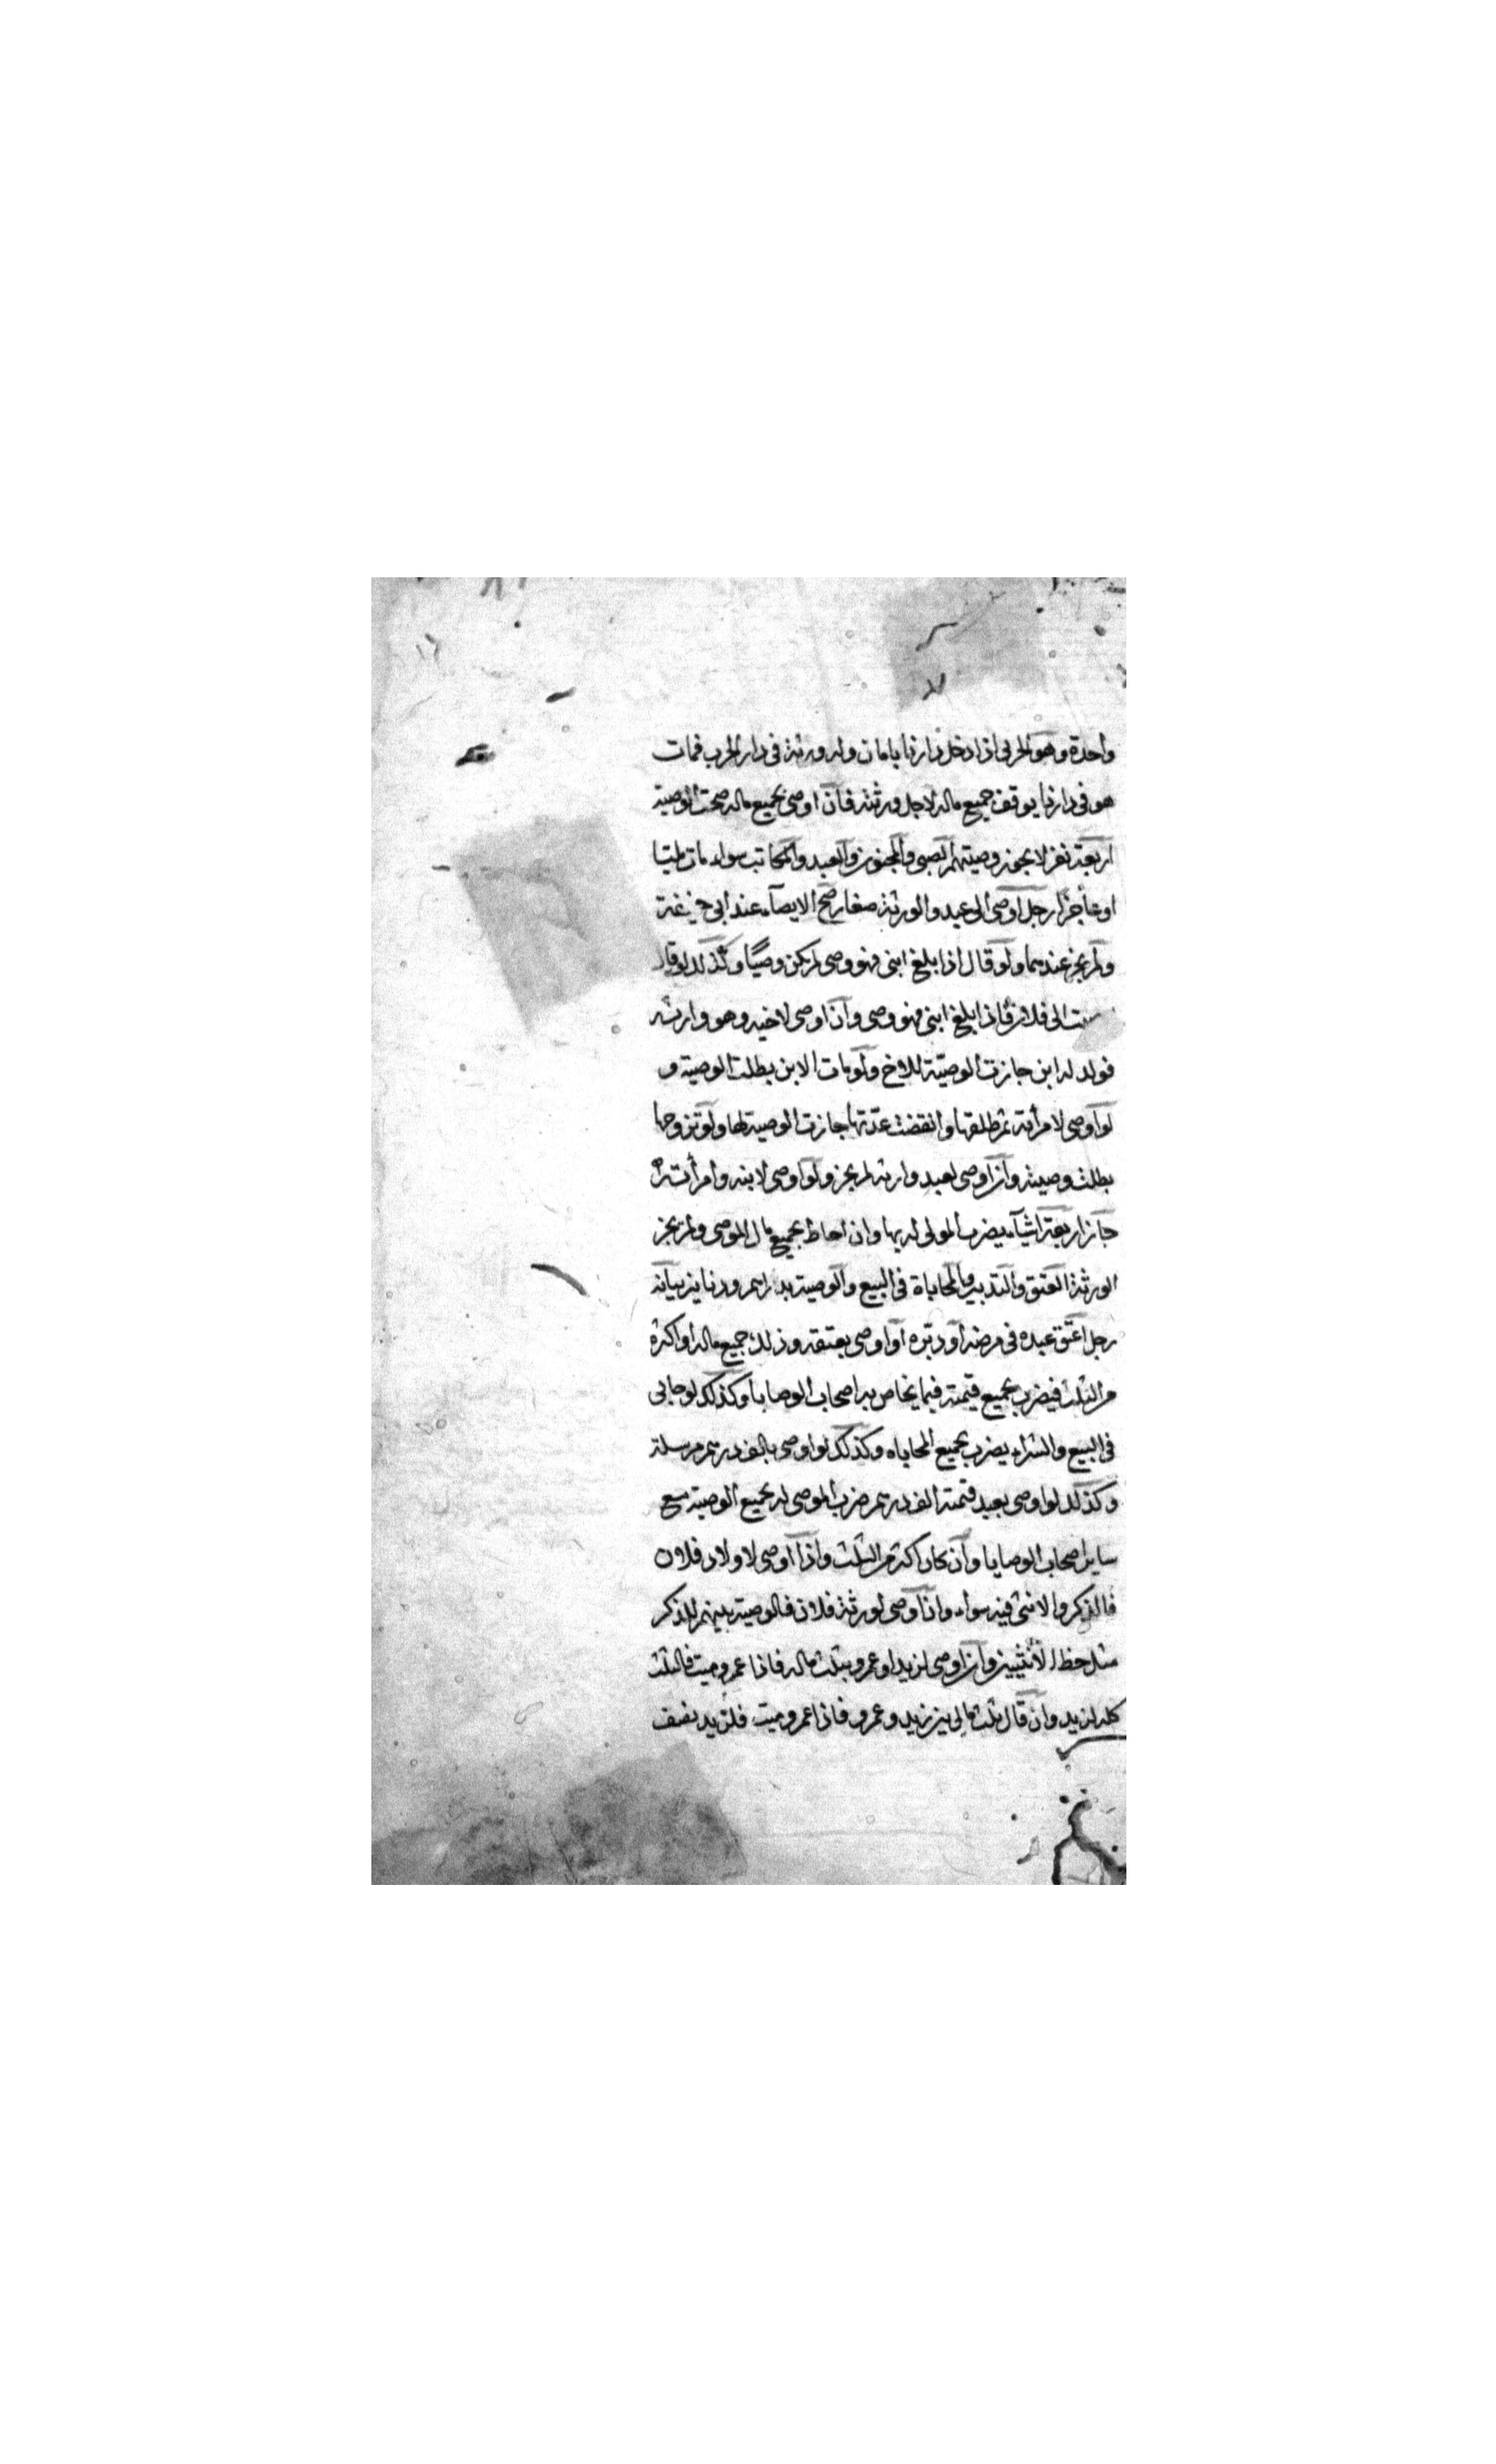 واحدة وهو الحربى اذا دخل دارنا بامان وله ورثة فى دار الحرب فمات
هو فى دارنا يوقف جميع ماله لاجل ورثته فان اوصى بجميع ماله صحت الوصية
اربعة نفر لا يجوز وصيتهم الصبى والمجنون والعبد والمكاتب سواء مات مليا
او عاجزا رجل اوصى الى عبد والورثة صغار صح الايصآء عند ابى حنيفة
ولم يجز عندهما ولو قال اذا بلغ ابنى فهو وصى لم يكن وصيا وكذلك لو قال
الى فلان فاذا بلغ ابنى فهو وصى وان اوصى لاخيه وهو وارثه
فولد له ابن جازت الوصية للاخ ولو مات الابن بطلت الوصية و
لو اوصى لامرأته ثم طلقها وانقضت عدتها جازت الوصية لها ولو تزوجها
بطلت وصيته وان اوصى لعبد وارثه لم يجز ولو اوصى لابنه وامرأته
جاز اربعة اشيآء يضرب المولى له بها وان احاط بجميع مال الموصى ولم يجز
الورثة العتق والتدبير والمحاباة فى البيع والوصية بدراهم ودنانير بيانه
رجل اعتق عبده فى مرضه او دبره او اوصى بعتقه وذلك جميع ماله او اكثره
من الثلث فيضرب بجميع قيمته فيما يخاص به اصحاب الوصايا وكذلك لو حابى
فى البيع والشراء يضرب بجميع المحاباه وكذلك لو اوصى بالف درهم مرسلة
وكذلك لو اوصى بعبد قيمته الف درهم ضرب الموصى له بجميع الوصية مع
ساير اصحاب الوصايا وان كان اكثر من الثلث واذا اوصى لاولاد فلان
فالذكر والانثى فيه سواء وان اوصى لورثة فلان فالوصية بينهم للذكر
مثل حظ الأنثيين وان اوصى لزيد او عمرو بثلث ماله فاذا عمرو ميت فالثلث
كله لزيد وان قال ثلث مالى بين زيد وعمرو فاذا عمرو ميت فلزيد نصف